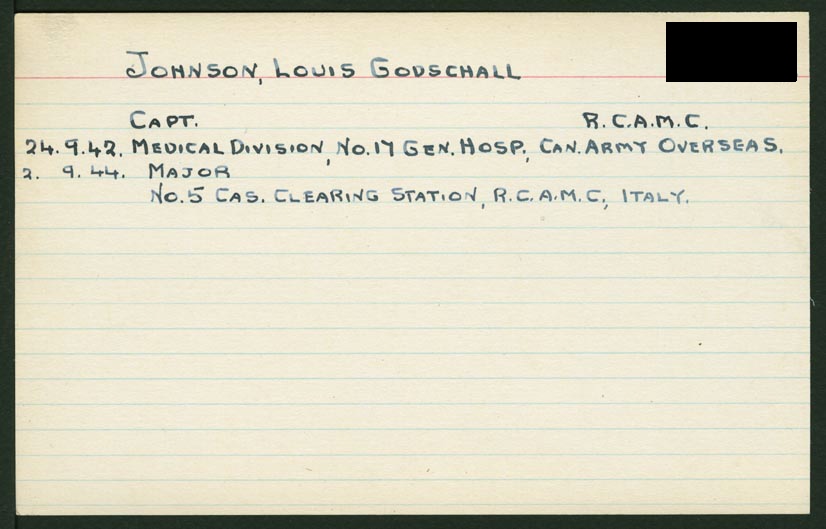 JOHNSON, LOUIS GODSCHALL
CAPT. R.C.A.M.C.
24.9.42. MEDICAL DIVISION, No.17 GEN. HOSP., CAN. ARMY OVERSEAS.
2. 9.44. MAJOR
No.5 CAS. CLEARING STATION, R.C.A.M.C., ITALY.